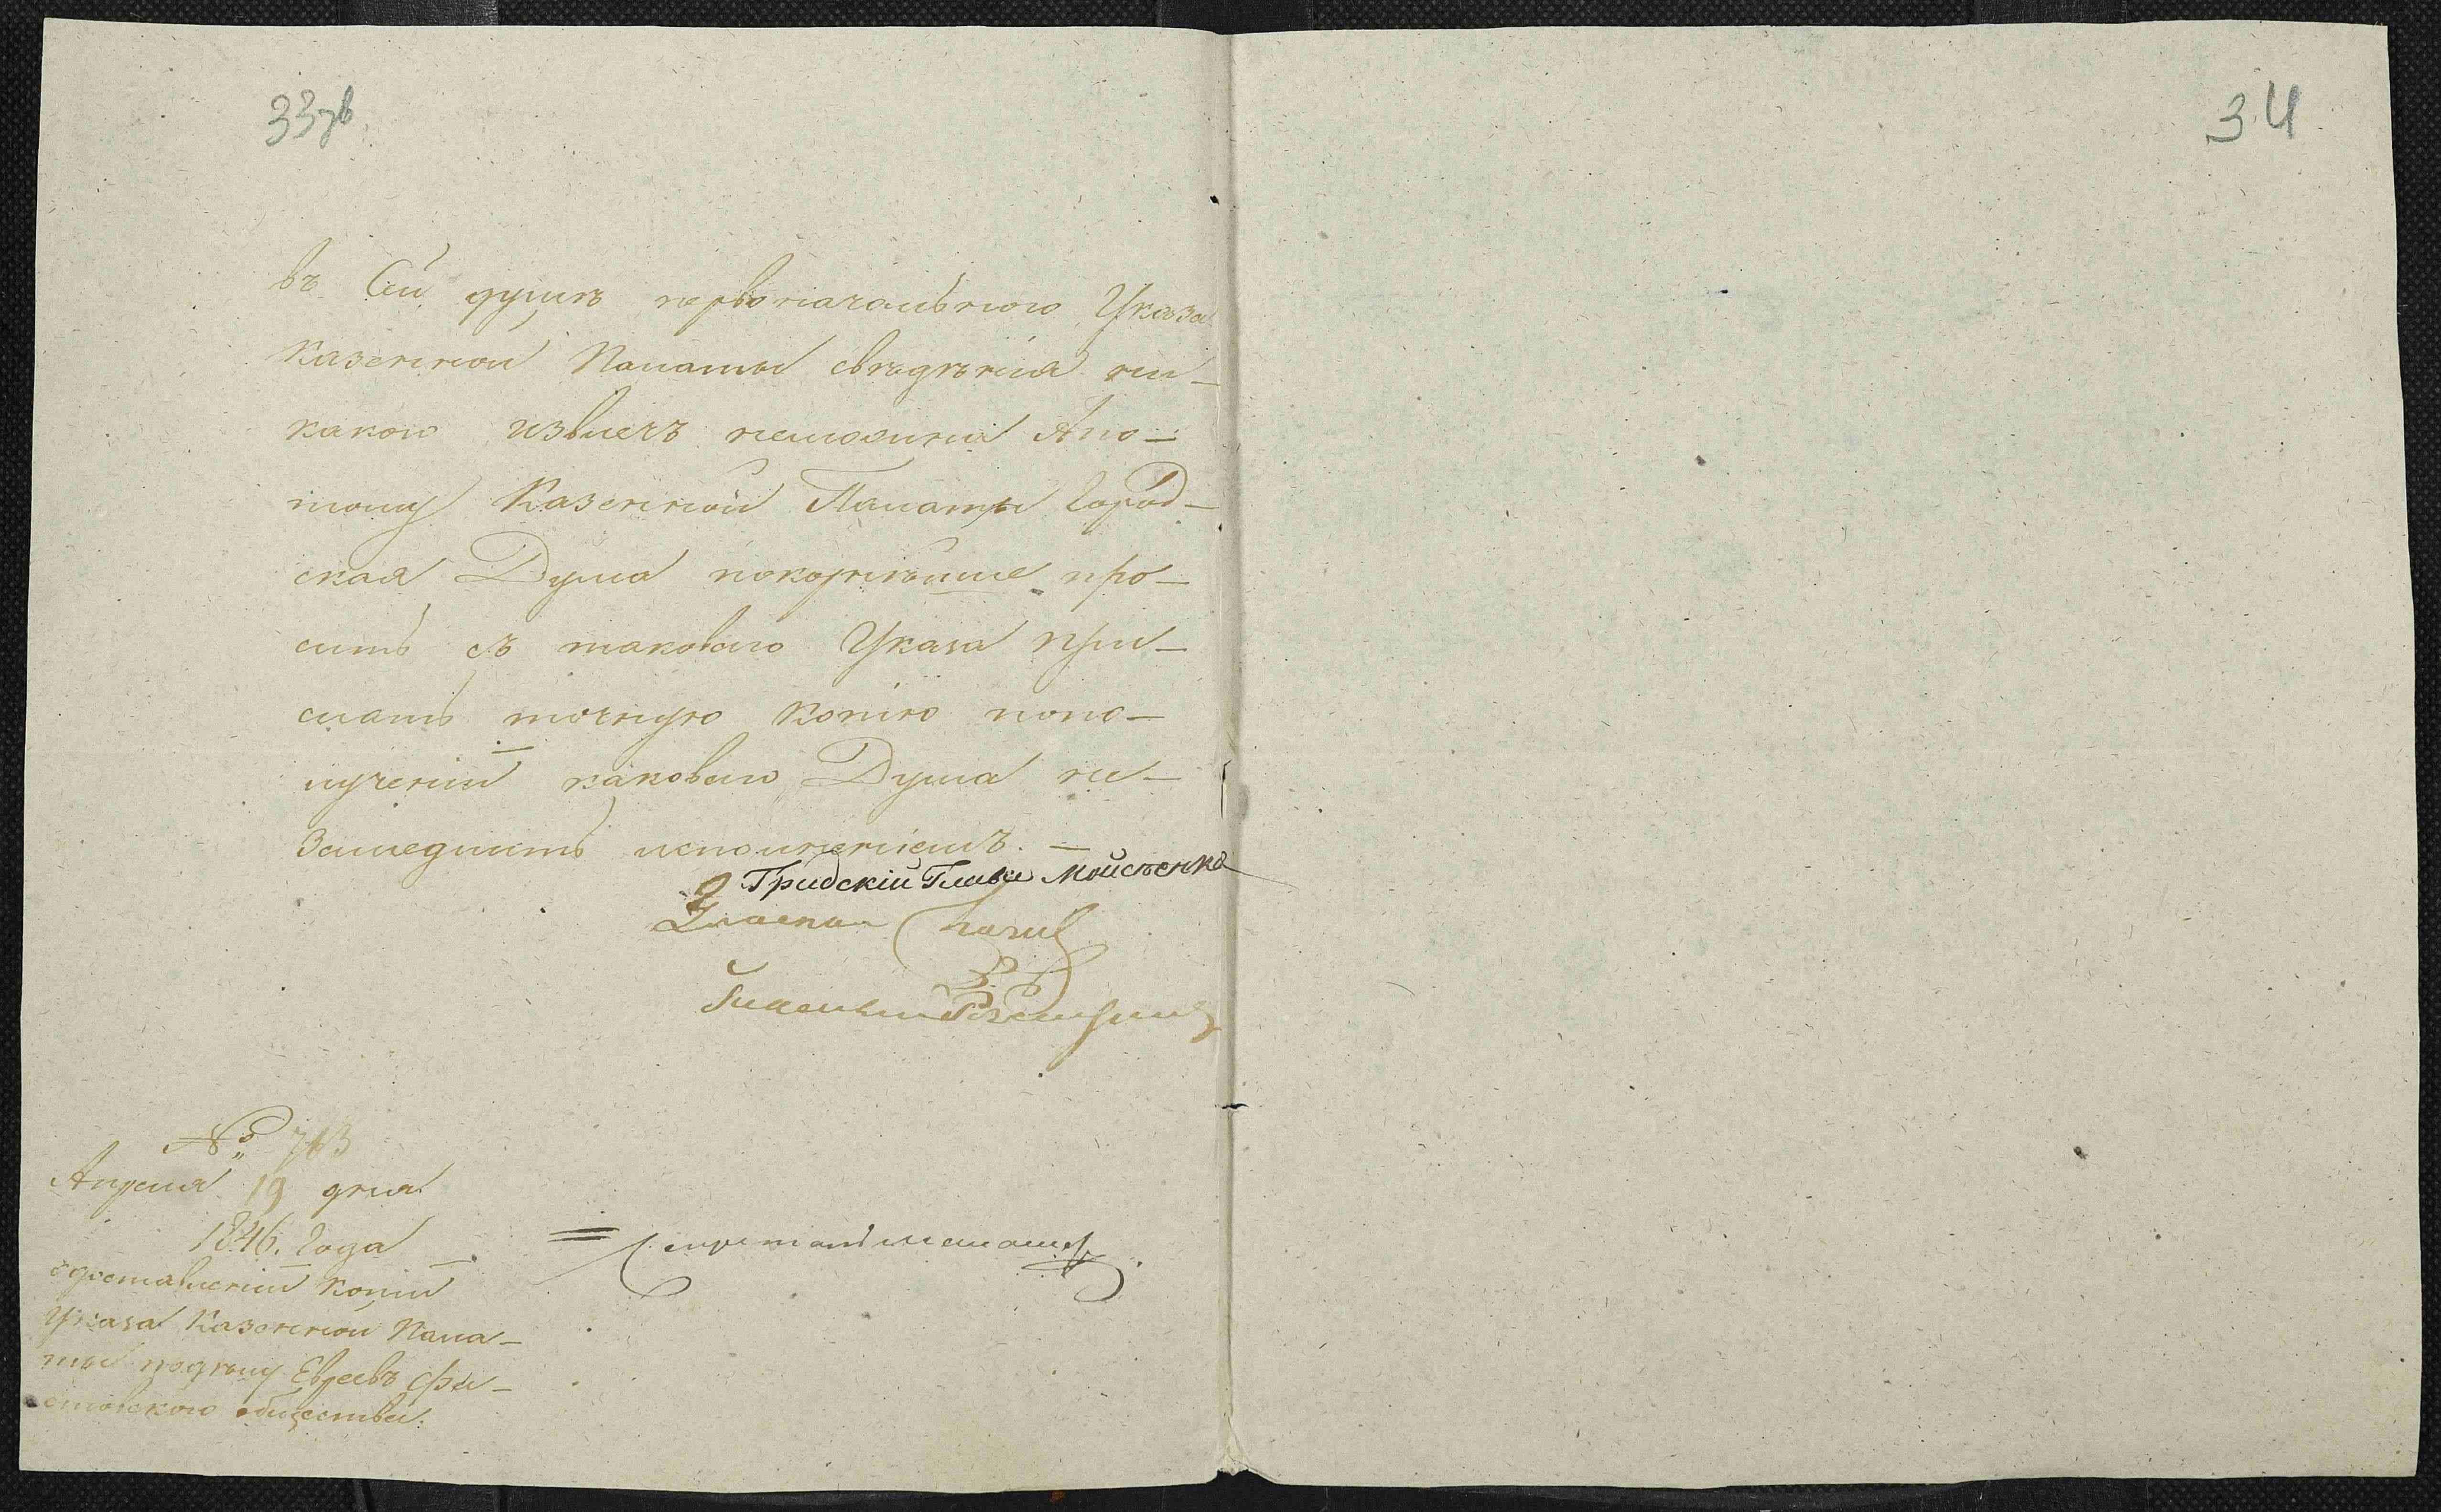 33зв
34
въ Сей думѣ первоначальнаго Указа
Казенной Палаты свѣдѣнія ни-
какого извлечь неможна Апо-
тому Казенной Палаты Город-
ская Дума покорнѣйше про-
ситъ съ таковаго Указа при-
слать точную Копію попо-
лученіи каковаго Дума не-
замедлитъ исполненіемъ. —
Градскій Глава Мойсѣенко
Гласный
№ 763
Апреля 19 дня
1846. Года
одоставленіи Копіи
Указа Казенной Пала-
ты подѣлу Евреевъ Фа-
стовского общества.